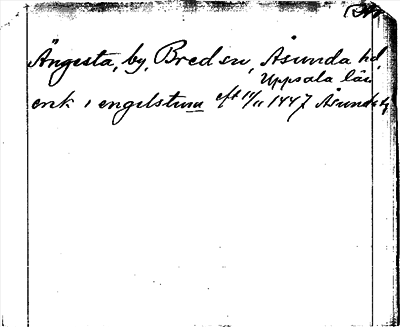 Ängesta, by, Bred sn, Åsunda hd,
Uppsala län
enk i engilstum eft 11/11 1447 Åsundab